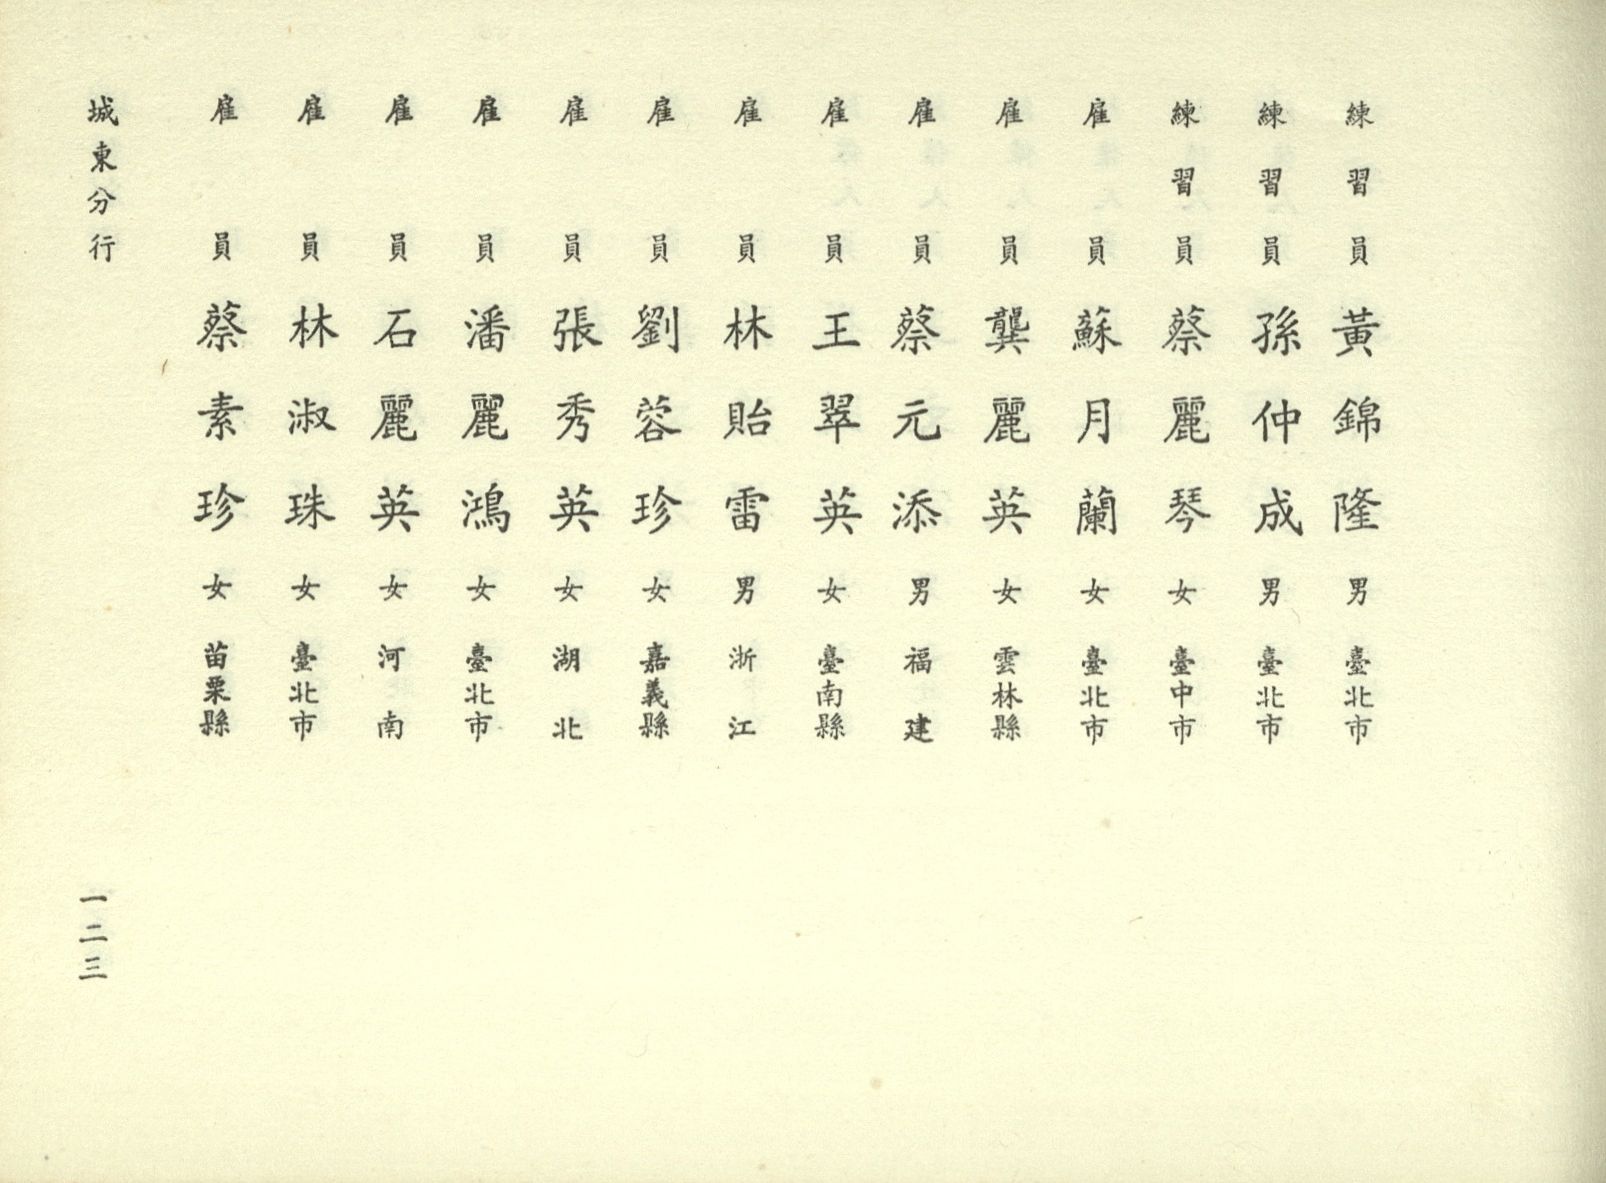 練習員黃錦隆男臺北市
練習員孫仲成男臺北市
練習員蔡麗琴女臺中市
雇員蘇月蘭女臺北市
雇員龔麗英女雲林縣
雇員蔡元添男福建
雇員王翠英女臺南縣
雇員林貽雷男浙江
雇員劉蓉珍女嘉義縣
雇員張秀英女湖北
雇員潘麗鴻女臺北市
雇員石麗英女河南
雇員林淑珠女臺北市
雇員蔡素珍女苗栗縣
城東分行
一二三